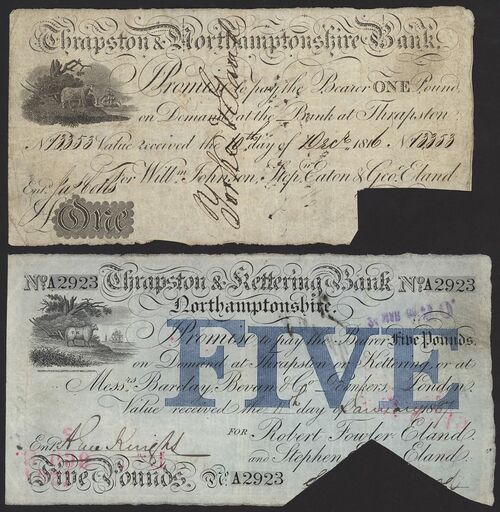 Thrapston & Northamptonshire Bank.
I Promise to pay the Bearer ONE Pound,
on Demand at the Bank at Thrapston
No 13353 Value received the day of Decr. 1816 No 13353
For Willm. Johnson, Stepn. Eaton & Geo. Eland
Entd.
£ One
No. A2923 Thrapston & Kettering Bank No. A2923
Northamptonshire.
FIVE
I Promise to pay the Bearer Five Pounds.
on Demand at Thrapston or Kettering, or at
Messrs. Barclay, Bevan & Co. Bankers, London.
Value received the day of January
FOR
Entd. Robert Fowler Eland
and Stephen Eland.
Five Pounds. No. A2923